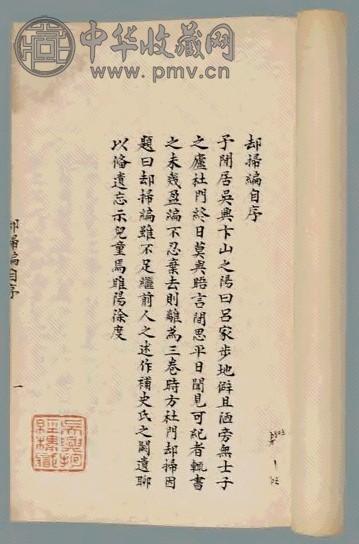 中华收藏网
www.pmv.cn
却掃編自序
予閒居吳興卞山之陽曰呂家步地僻且陋旁無士子
之廬杜門終日莫與晤言間思平日聞見可紀者輒書
之未幾盈編不忍棄去則離為三卷時方杜門却掃因
題曰却掃編雖不足繼前人之述作補史氏之闕遺聊
以俻遺忘示兒童焉睢陽徐度
却掃編自序
一